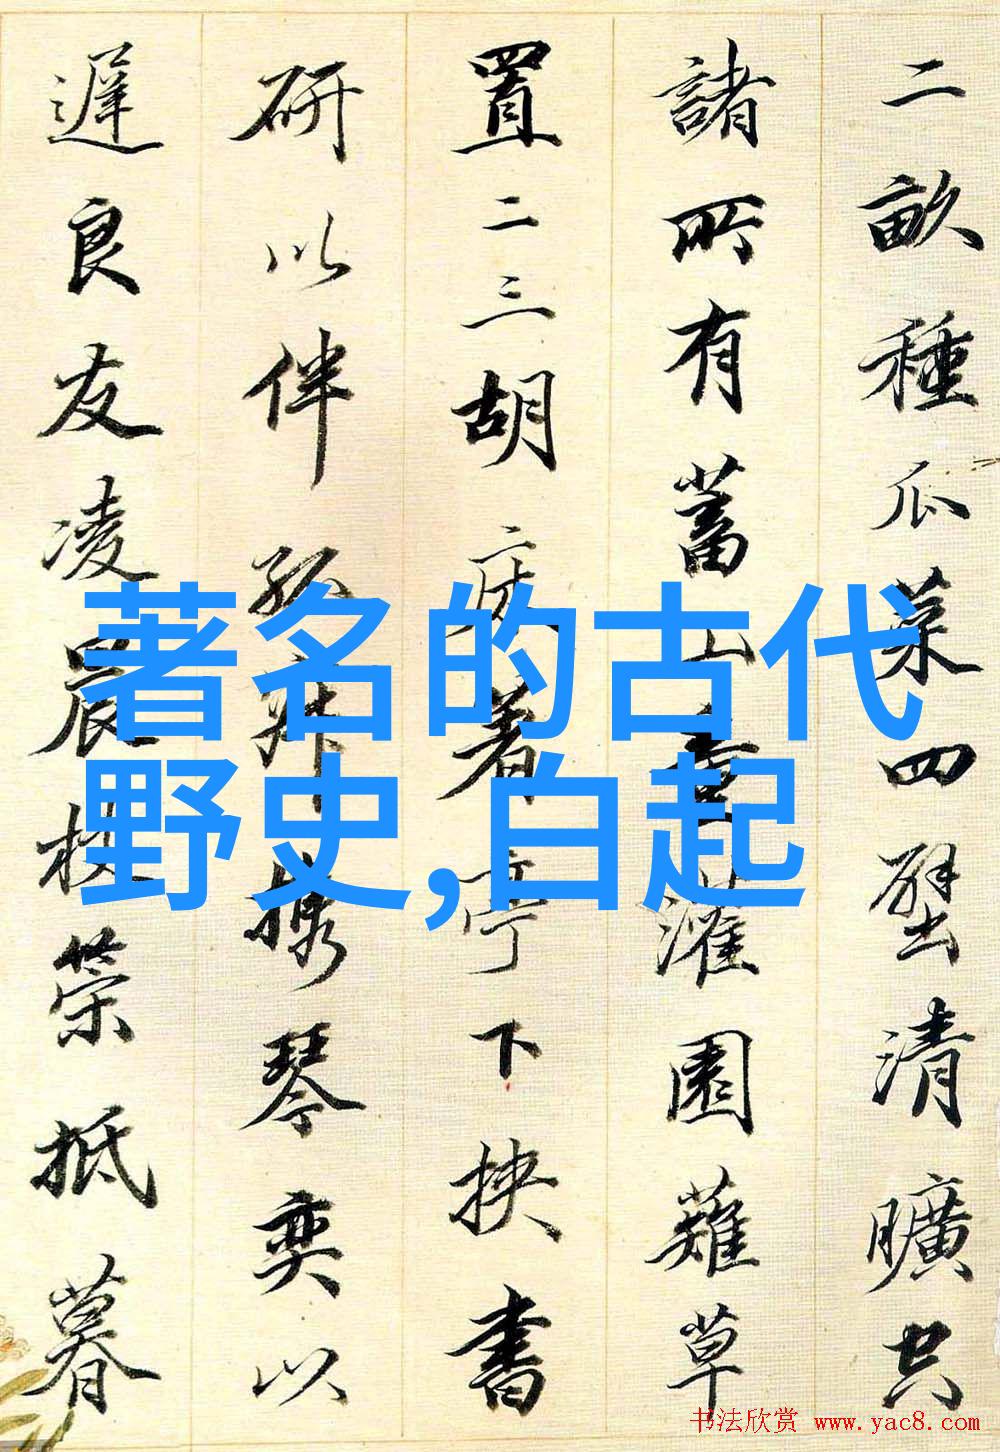 二畝種瓜菜四壁清曠空
諸所有蓄山童灌園薙草
置二三胡床著亭下挾書
研以伴孤寂攜琴奕以
遲良友凌晨杖策抵暮
著名的古代
野史,白起
书法欣赏 www.yac8.com